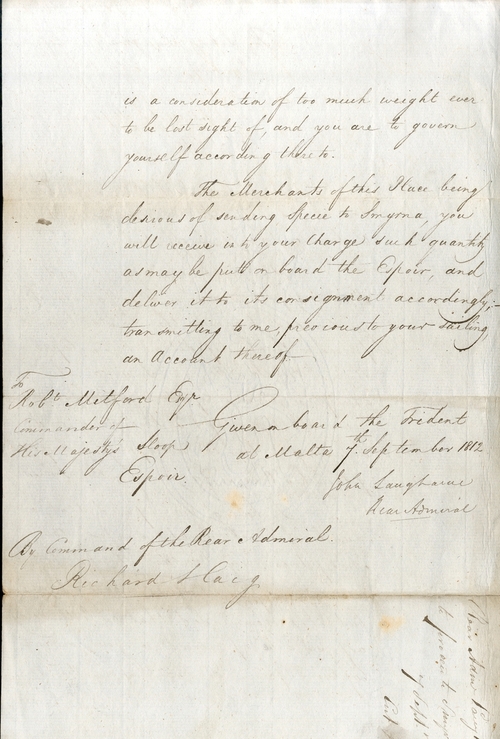 is a consideration of too much weight ever
to be lost sight of, and you are to govern
yourself according thereto.
The Merchants of this Place being
desirous of sending Specie to Smyrna, you
will receive into your Charge such quantity
as may be put on board the Espoir, and
deliver it to its consignment accordingly;
transmitting to me, previous to your sailing,
an Account thereof
To
Robt Metford Esqr
Commander of
His Majesty's Sloop
Espoir.
Given on board the Trident
at Malta 7th September 1812
John Laugharne
Rear Admiral
By Command of the Rear Admiral.
Richard Haig
Rear Adml
to
7 Sept